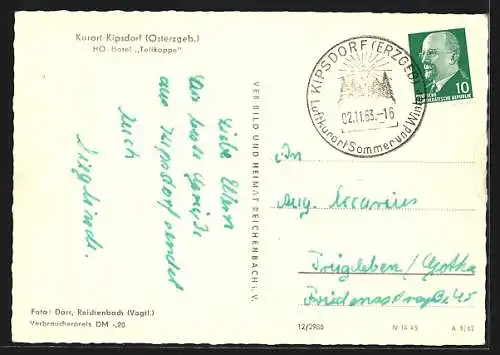 Kurort Kipsdorf (Osterzgeb.)
HO-Hotel „Tellkoppe"
KIPSDORF (ERZGEB)
Luftkurort Sommer und Winter
02.11.63.-16
10
DEUTSCHE
DEMOKRATISCHE REPUBLIK
Liebe Eltern
Die besten Grüße
aus Kipsdorf sendet
Euch
Sieglinde.
VEB BILD UND HEIMAT REICHENBACH i. V.
An
Aug.
Trügleben / Gotha
Friedensstraße 45
Foto: Darr, Reichenbach (Vogtl.)
Verbraucherpreis DM -,20
12/2986
IV 14 45
A 3/62